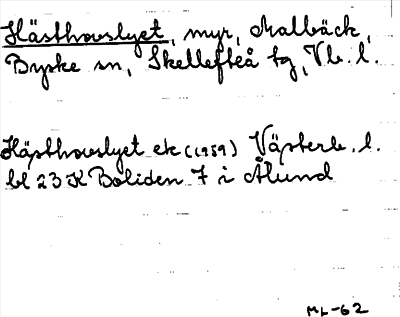 Hästhovslyet, myr, Malbäck,
Byske sn, Skellefteå tg, Vb. l.
Hästhovslyet ek (1959) Västerb. l.
bl 23 K Boliden 7 i Ålund
ML-62